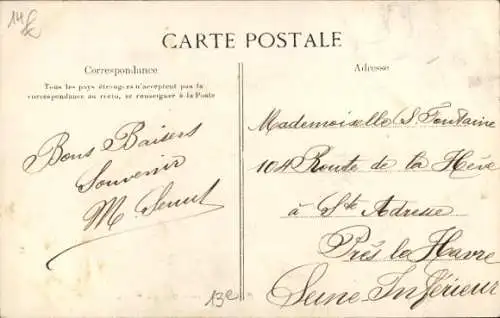 14
CARTE POSTALE
Correspondance
Tous les pays étrangers n'acceptent pas la
correspondance au recto, se renseigner à la Poste
Bons Baisers
Souvenir
M
13e
Adresse
Mademoiselle S. Fontaine
104 Route de la Hève
à Ste Adresse
Près le Havre
Seine Inférieur